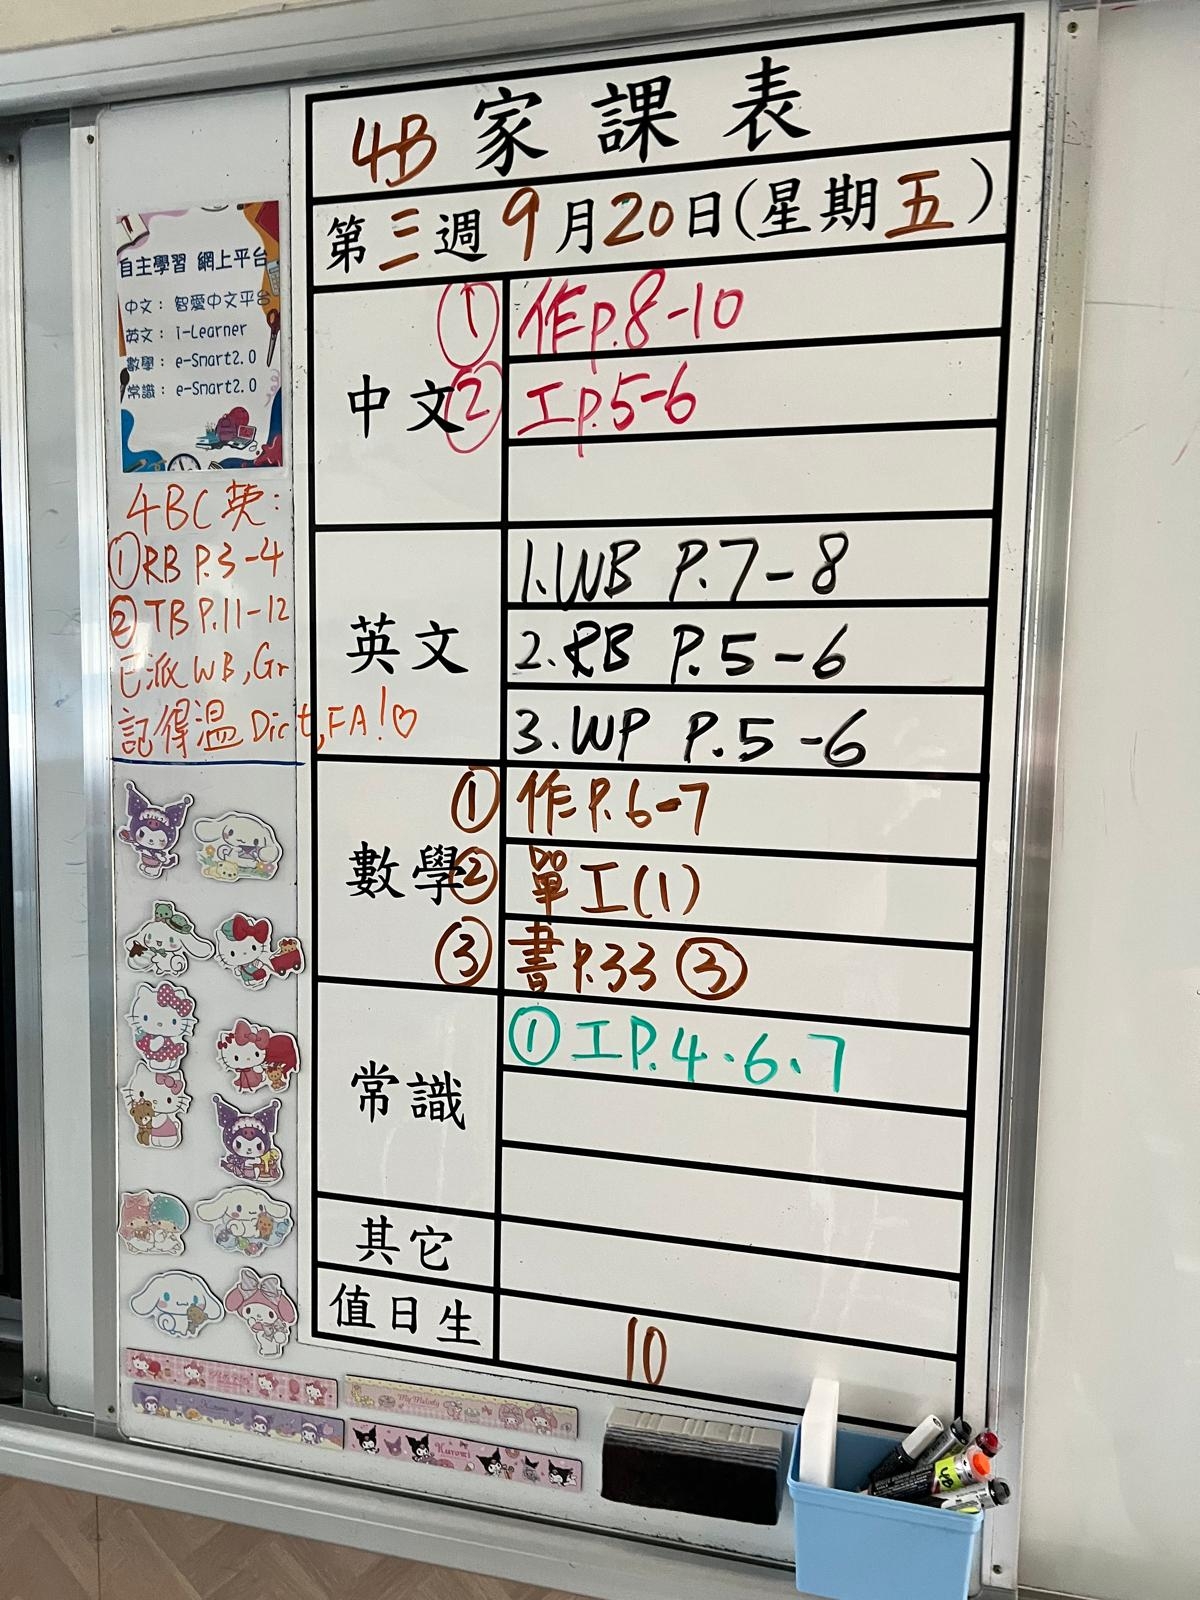 4B 家課表
第三週9月20日(星期五)
中文
① 作p.8-10
② 工p.5-6
英文
1. WB P.7-8
2. RB P.5-6
3. WP P.5-6
數學
① 作P.6-7
② 單工(1)
③ 書P.33 ③
常識
① 工P.4、6、7
其它
值日生
10
自主學習 網上平台
中文： 智愛中文平台
英文： i-Learner
數學： e-Smart2.0
常識： e-Smart2.0
4BC 英:
① RB P.3-4
② TB P.11-12
已派 WB, Gr
記得溫 Dict, FA!♡
My Melody
Kuromi